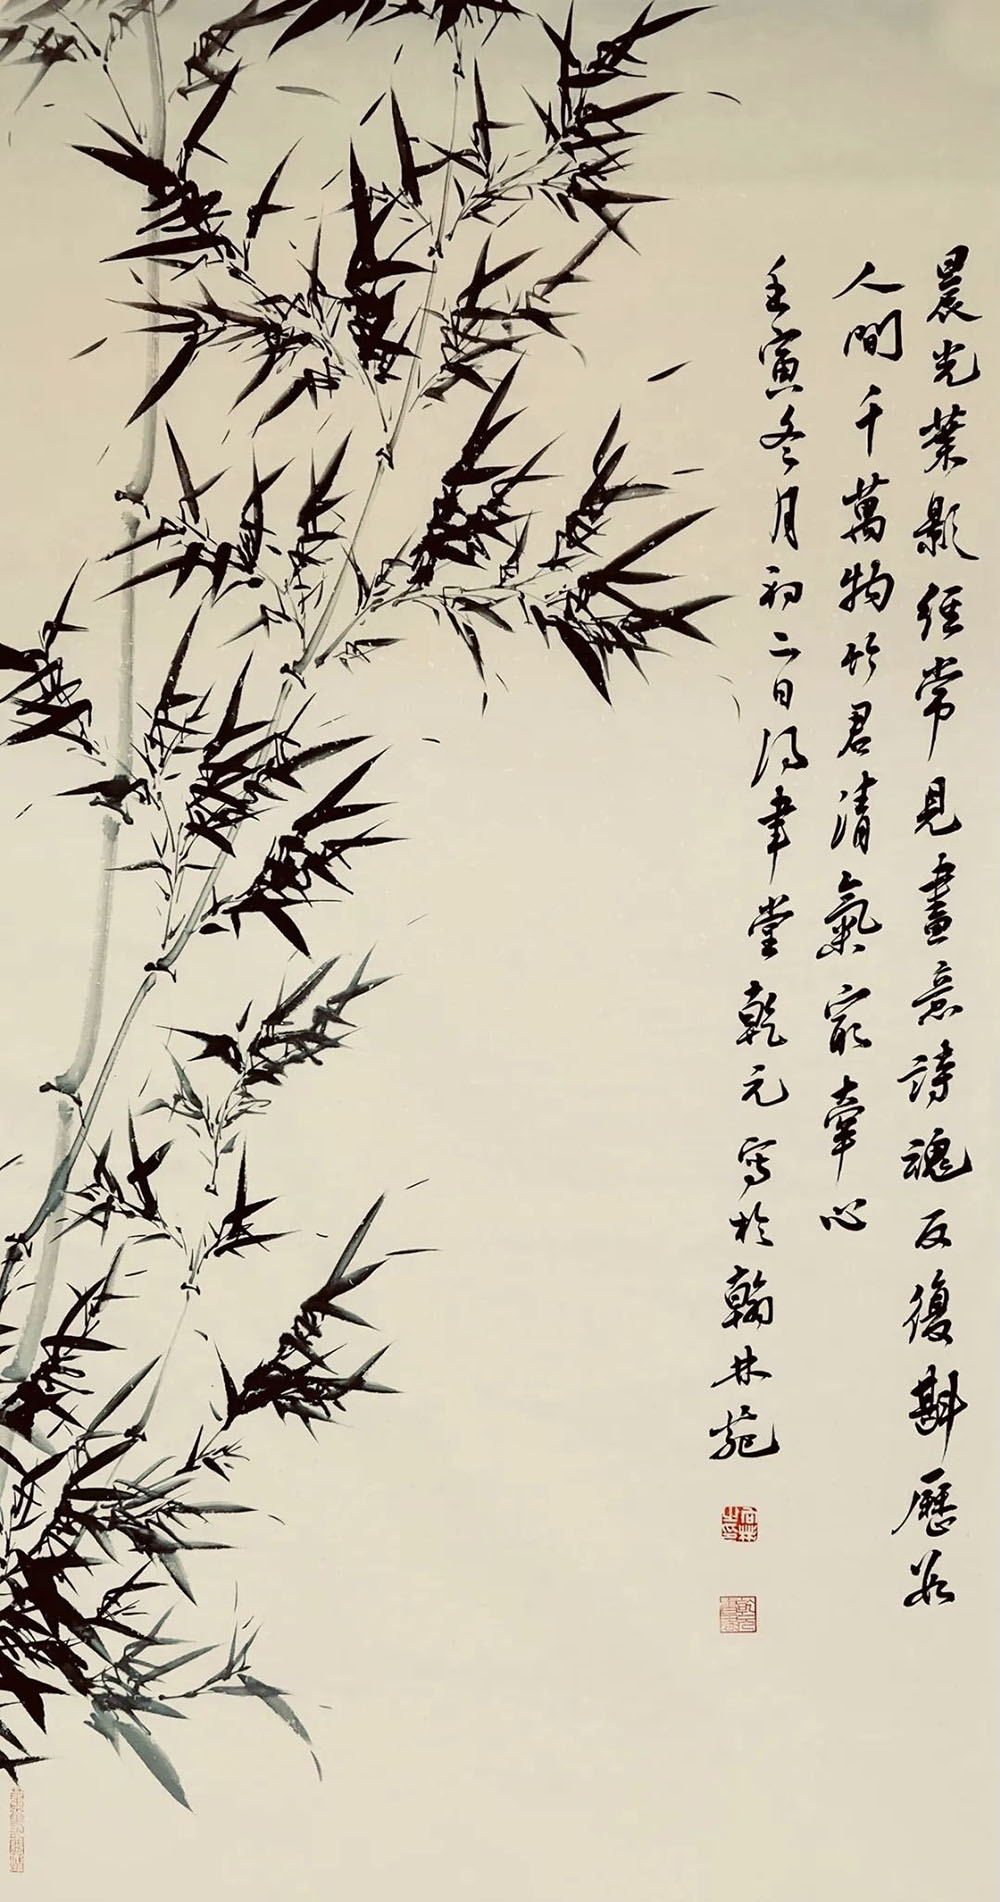 晨光叶影经常见畫意詩魂反復斟歷数
人間千萬物竹君清氣最牽心
壬寅冬月初二日得聿堂乾元寫於翰林苑